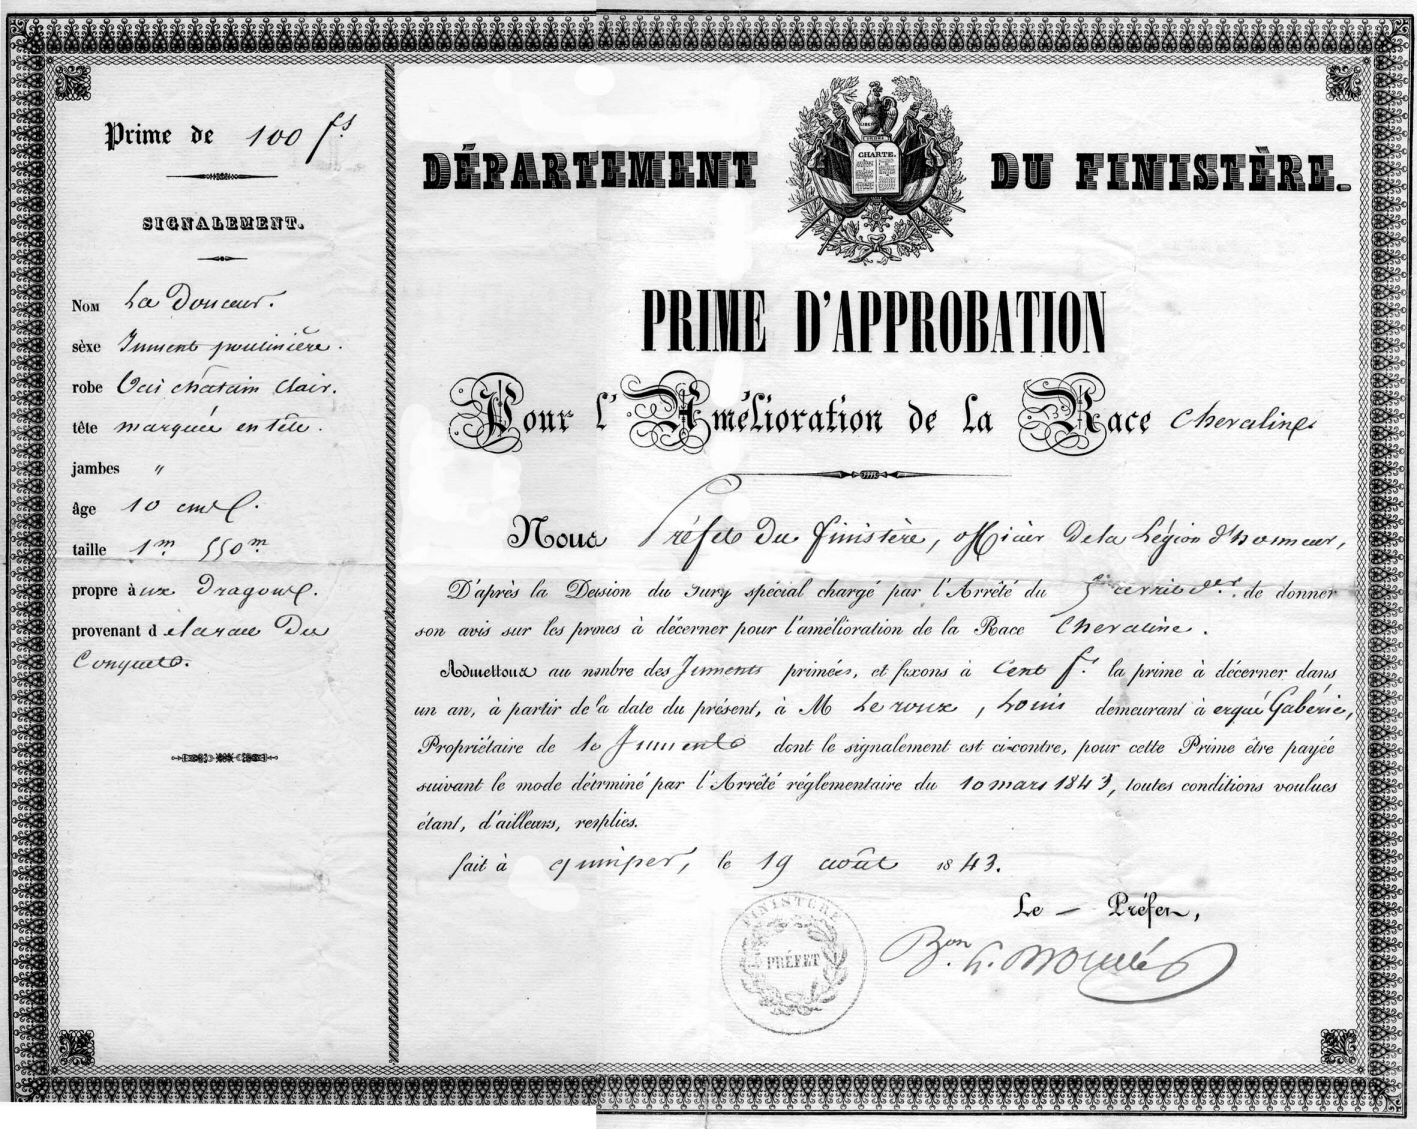 Prime de 100 fs.
SIGNALEMENT.
Nom La Douceur.
sèxe Jument poulinière.
robe bai châtain clair.
tête marquée en tête.
jambes "
âge 10 ans.
taille 1m 550m
propre àux Dragons.
provenant d
Conquet.
DÉPARTEMENT DU FINISTÈRE.
LIBERTÉ
CHARTE.
PRIME D'APPROBATION
Pour l'Amélioration de la Race chevaline
Nous Préfet du finistère, officier de la Légion d'honneur,
D'après la Decision du Jury spécial chargé par l'Arrêté du de donner
son avis sur les primes à décerner pour l'amélioration de la Race Chevaline.
Admettons au nombre des Juments primées, et fixons à Cent fs. la prime à décerner dans
un an, à partir de la date du présent, à M Le roux, Louis demeurant à ergué Gabéric,
Propriétaire de la Jument dont le signalement est ci-contre, pour cette Prime être payée
suivant le mode détrminé par l'Arrêté réglementaire du 10 mars 1843, toutes conditions voulues
étant, d'ailleurs, remplies.
fait à quimper, le 19 août 1843.
Le Préfet,
FINISTÈRE
PRÉFET
Bon.